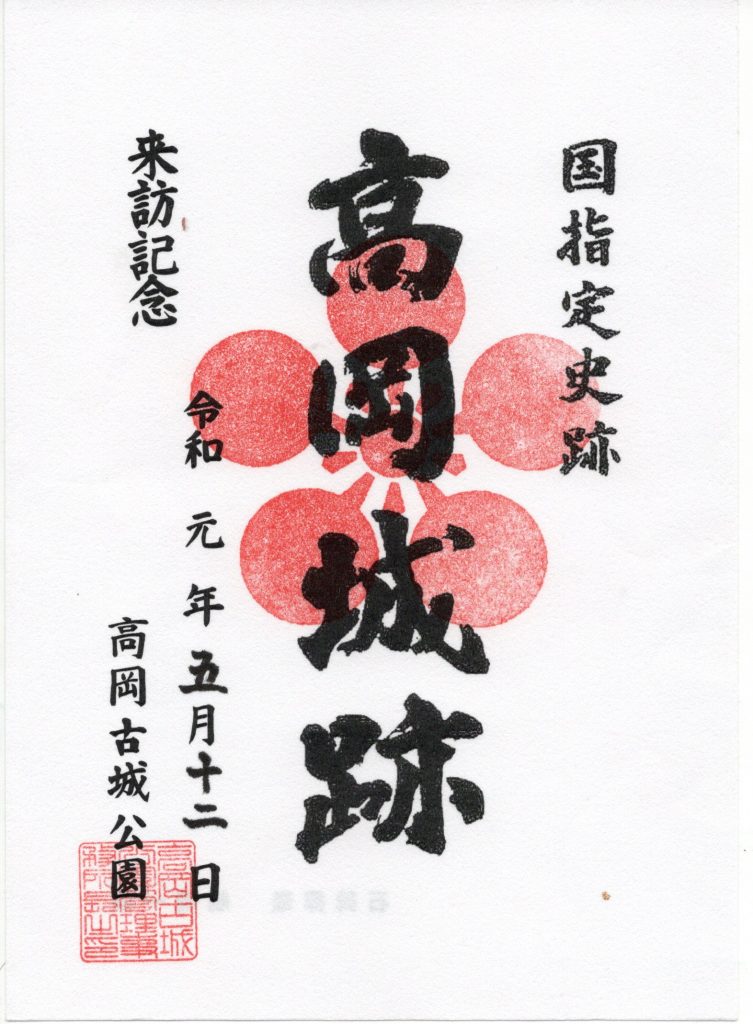 国指定史跡
高岡城跡
来訪記念
令和 元 年 五月十二日
高岡古城公園